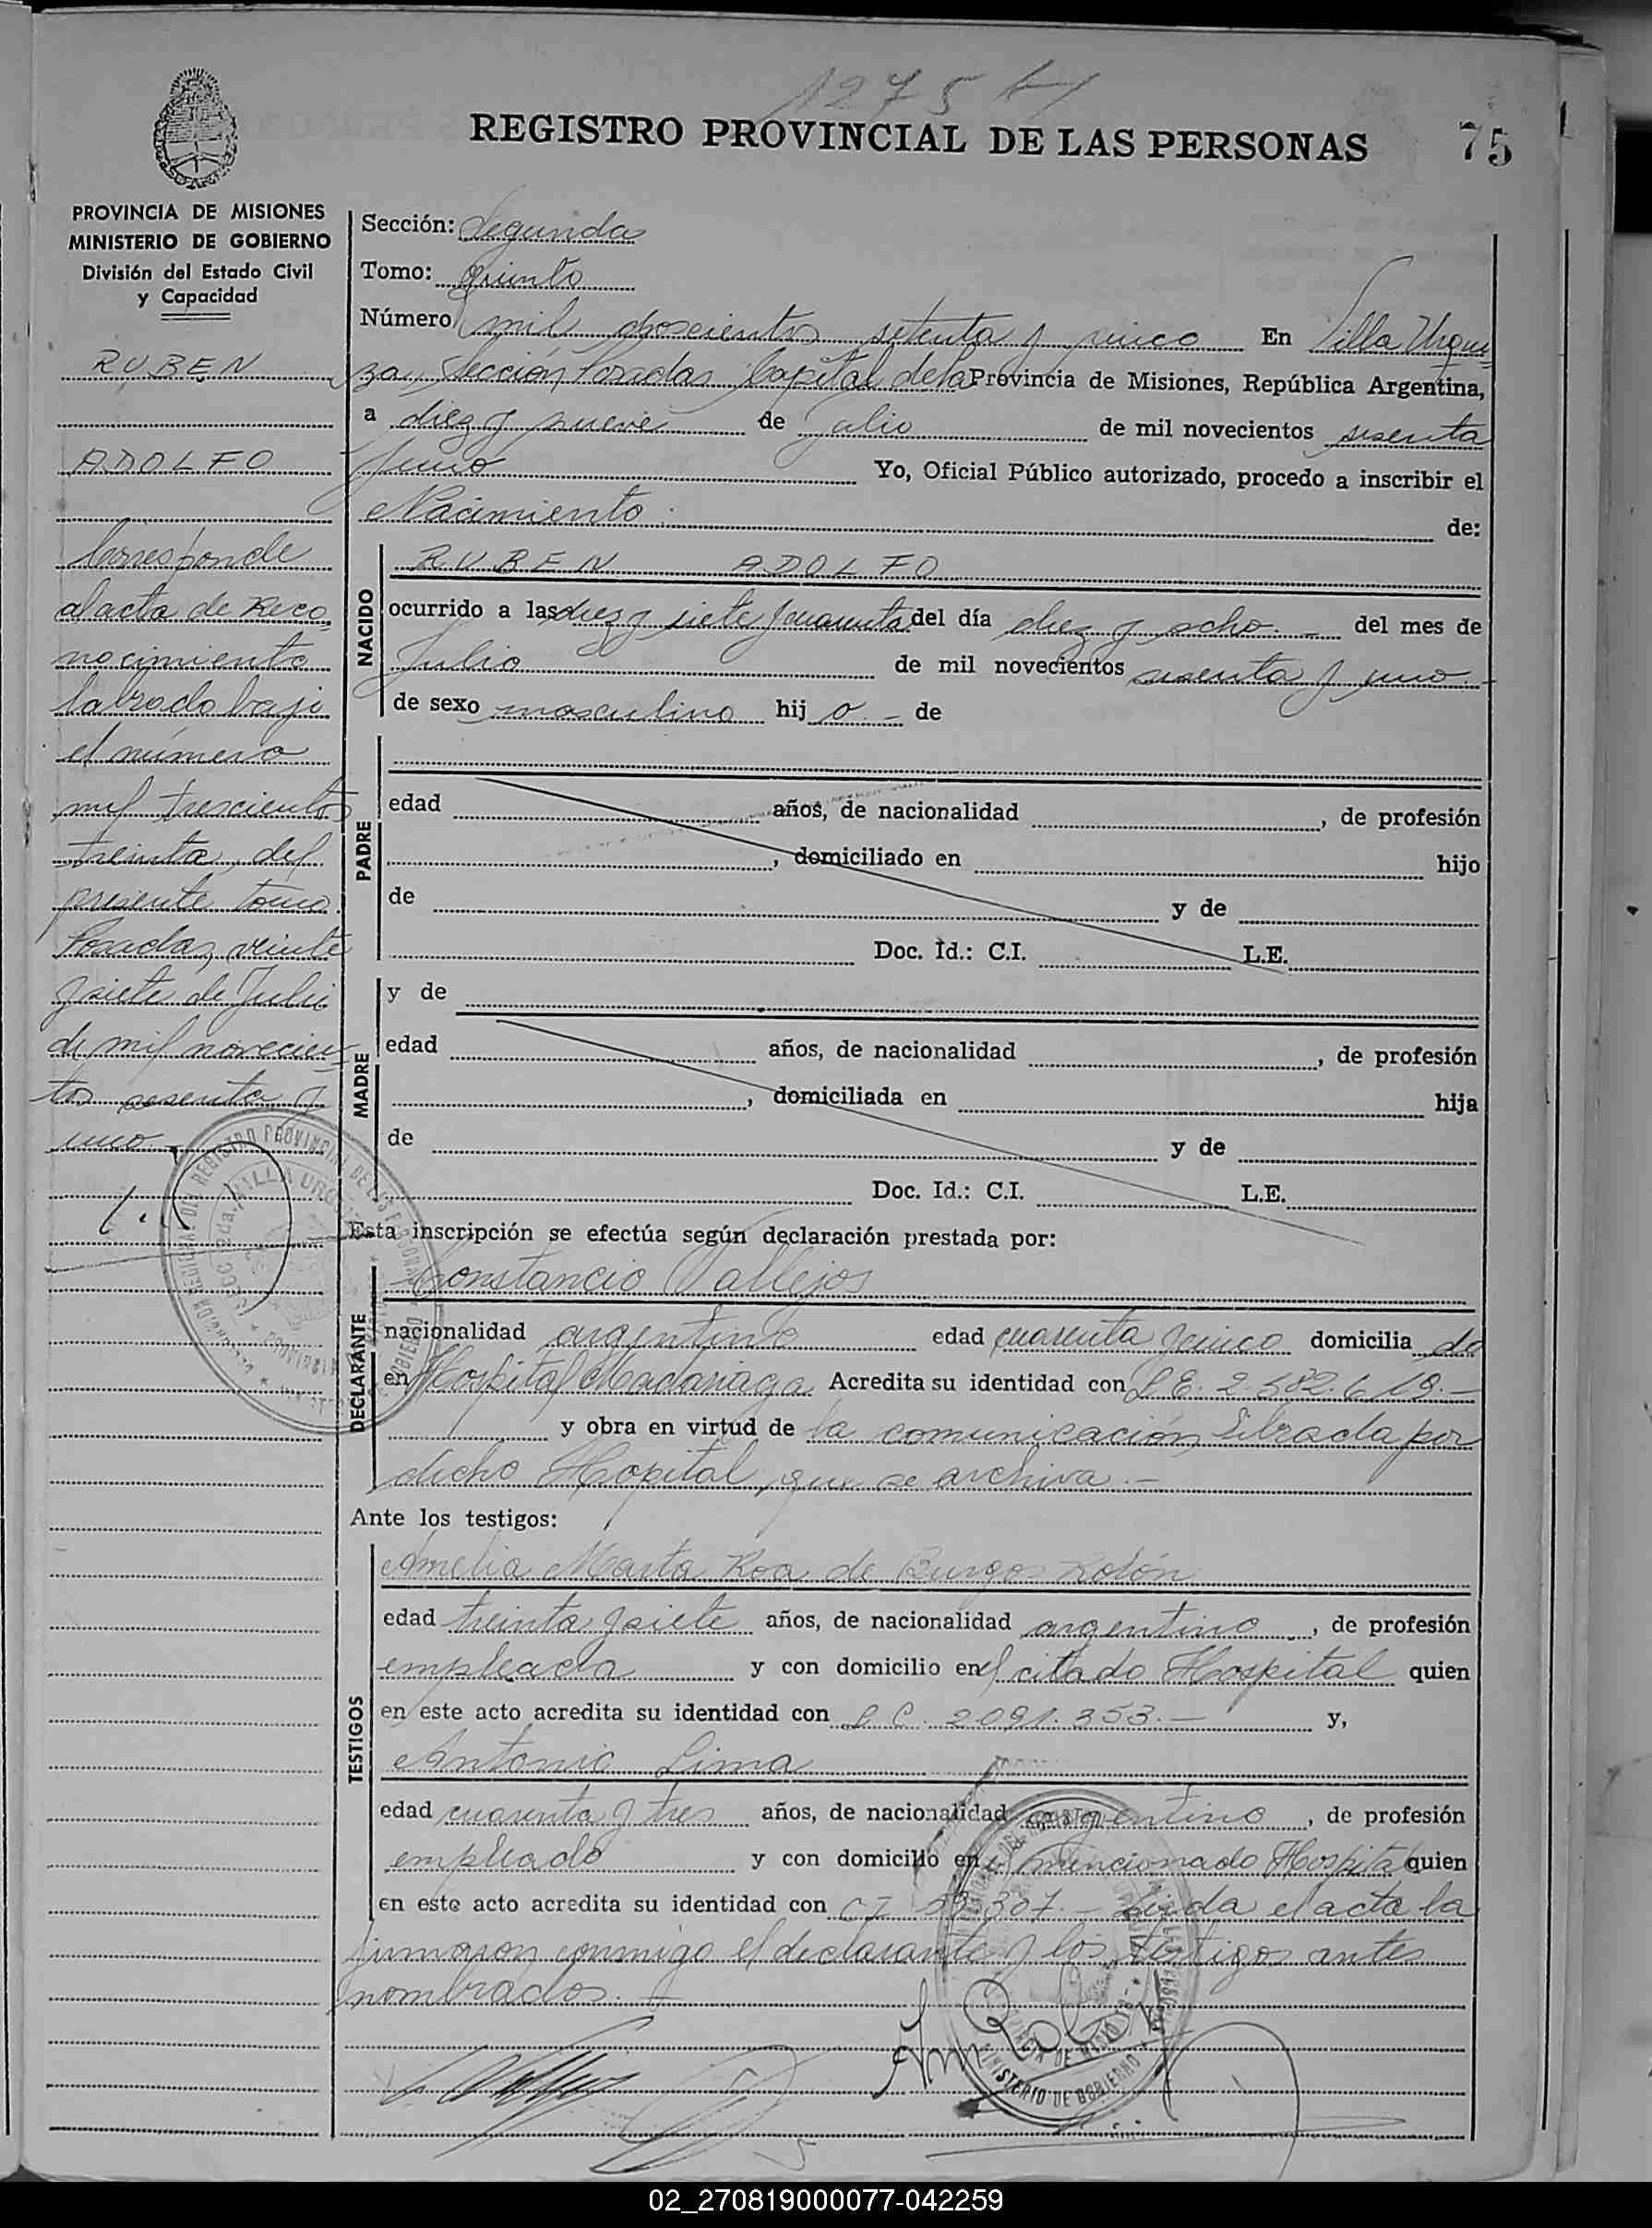 1275
REGISTRO PROVINCIAL DE LAS PERSONAS
75
PROVINCIA DE MISIONES
MINISTERIO DE GOBIERNO
División del Estado Civil
y Capacidad
RUBEN
ADOLFO
Corresponde
al acta de Reco
nocimiento
labrado bajo
el número
mil trescientos
treinta, del
presente tomo.
Posadas, veinte
y siete de Julio
de mil novecien
tos sesenta y
uno.-
Sección: Segunda
Tomo: quinto
Número mil doscientos setenta y cinco En Villa Urqui
za, Sección Posadas Capital de la Provincia de Misiones, República Argentina,
a diez y nueve de Julio de mil novecientos sesenta
y uno Yo, Oficial Público autorizado, procedo a inscribir el
Nacimiento de:
NACIDO
RUBEN ADOLFO
ocurrido a las diez y siete y cuarenta del día diez y ocho.- del mes de
Julio de mil novecientos sesenta y uno.-
de sexo masculino hijo.- de
PADRE
edad años, de nacionalidad , de profesión
, domiciliado en hijo
de y de
Doc. Id.: C.I. L.E.
MADRE
y de
edad años, de nacionalidad , de profesión
, domiciliada en hija
de y de
Doc. Id.: C.I. L.E.
Esta inscripción se efectúa según declaración prestada por:
DECLARANTE
Constancio Vallejos
nacionalidad argentino edad cuarenta y cinco domicilia do
en Hospital Madariaga Acredita su identidad con L E. 2.582.619.-
y obra en virtud de la comunicación librada por
dicho Hopital, que se archiva.-
Ante los testigos:
TESTIGOS
Amelia Marta Roa de Burgos Rolón
edad treinta y siete años, de nacionalidad argentino , de profesión
empleada y con domicilio en el citado Hospital quien
en este acto acredita su identidad con L C. 2091.353.- y,
Antonio Lima
edad cuarenta y tres años, de nacionalidad argentino , de profesión
empleado y con domicilio en el mencionado Hospital quien
en este acto acredita su identidad con C I 307.- Leida el acta la
firmaron conmigo el declarante y los testigos antes
nombrados.
MINISTERIO DE GOBIERNO
02_270819000077-042259